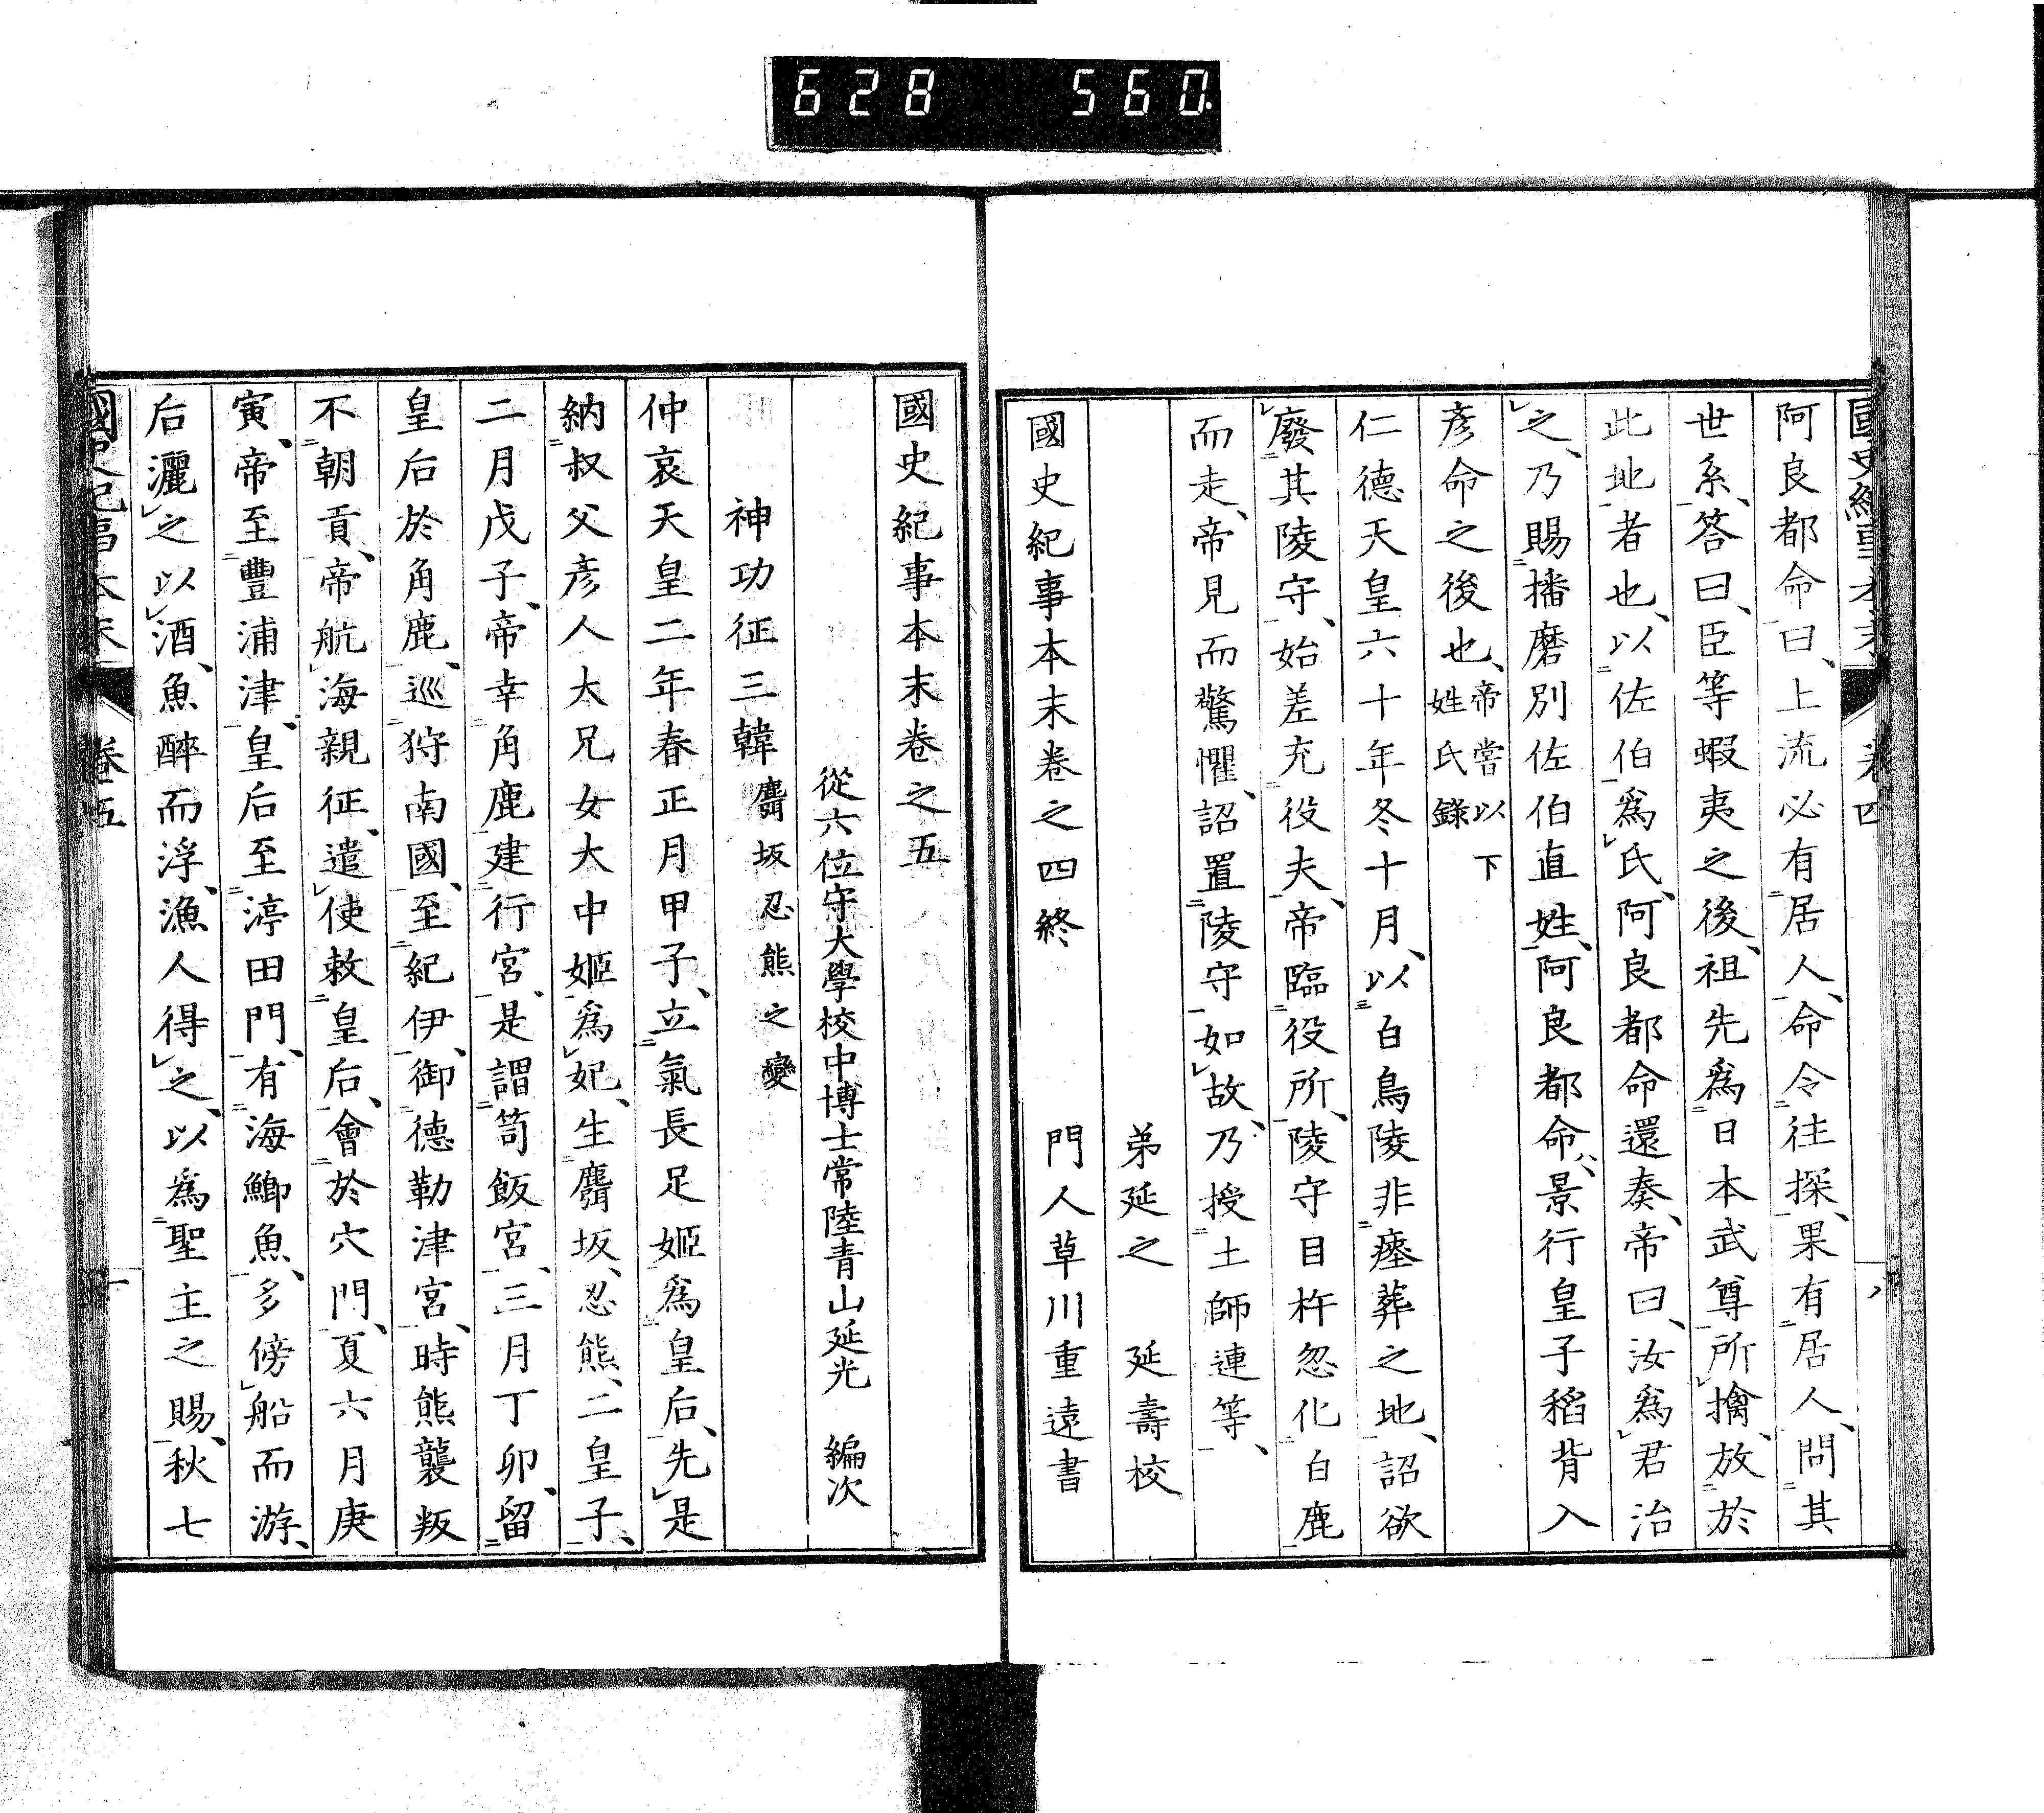 628 560
阿良都命曰、上流必有居人、命令往探、果有居人、問其
世系、答曰、臣等蝦夷之後、祖先爲日本武尊所擒、放於
此地者也、以佐伯爲氏、阿良都命還奏、帝曰、汝爲君治
之、乃賜播磨別佐伯直姓、阿良都命、景行皇子稻背入
彥命之後也、帝嘗以下
姓氏錄
仁德天皇六十年冬十月、以白鳥陵非瘞葬之地、詔欲
廢其陵守、始差充役夫、帝臨役所、陵守目杵忽化白鹿
而走、帝見而驚懼、詔置陵守如故、乃授土師連等、
弟延之 延壽校
國史紀事本末卷之四終 門人草川重遠書
國史紀事本末卷之五
從六位守大學校中博士常陸青山延光 編次
神功征三韓 麛坂忍熊之變
仲哀天皇二年春正月甲子、立氣長足姬爲皇后、先是
納叔父彥人大兄女大中姬爲妃、生麛坂、忍熊、二皇子、
二月戊子、帝幸角鹿、建行宮、是謂笥飯宮、三月丁卯、留
皇后於角鹿、巡狩南國、至紀伊、御德勒津宮、時熊襲叛
不朝貢、帝航海親征、遣使敕皇后、會於穴門、夏六月庚
寅、帝至豐浦津、皇后至渟田門、有海鯽魚、多傍船而游、
后灑之以酒、魚醉而浮、漁人得之、以爲聖主之賜、秋七
國史紀事本末 卷五 一